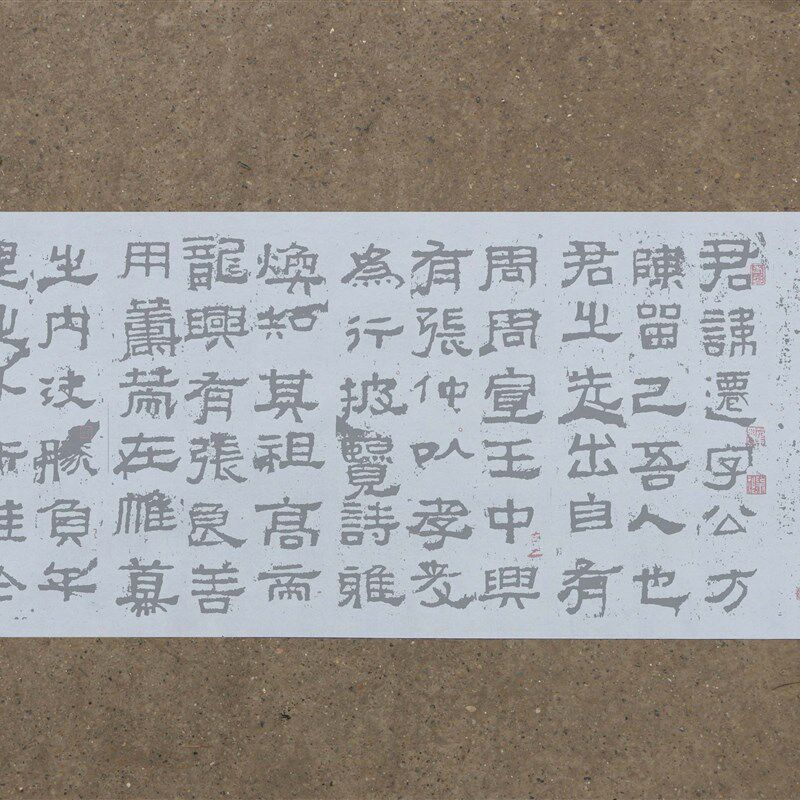 君諱遷字公方
陳留己吾人也
君之先出自有
周周宣王中興
有張仲以孝友
為行披覽詩雅
煥知其祖高帝
龍興有張良善
用籌策在帷幕
之内決勝負千